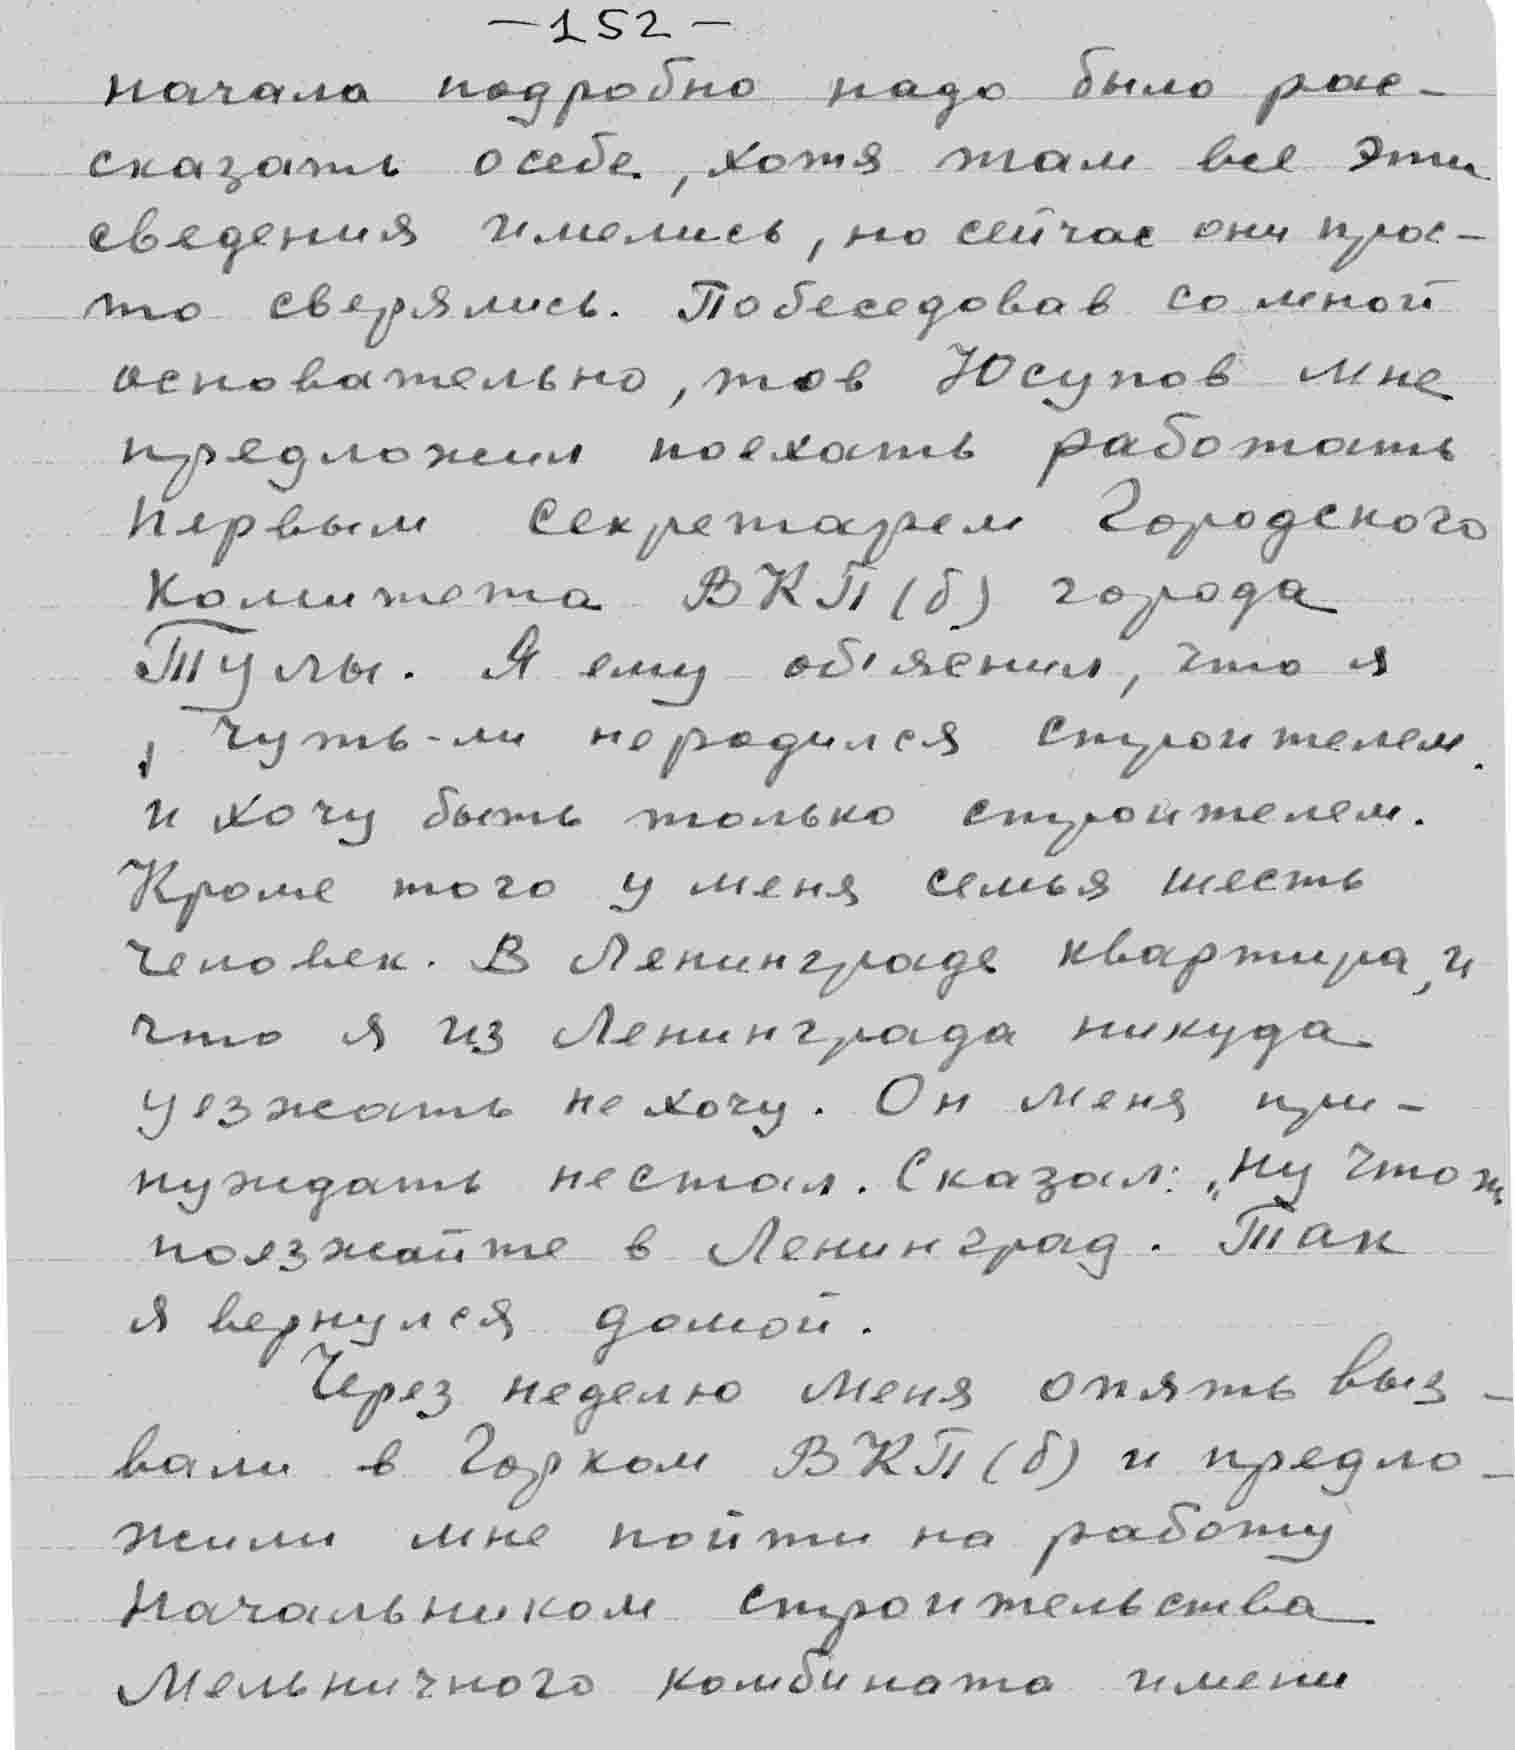 -152-
начала подробно надо было рас-
сказать о себе, хотя там все эти
сведения имелись, но сейчас они прос-
то сверялись. Побеседовав со мной
основательно, тов Юсупов мне
предложил поехать работать
первым секретарем Городского
Комитета ВКП(б) города
Тулы. Я ему обяснил, что я
чуть-ли не родился строителем
и хочу быть только строителем.
Кроме того у меня семья шесть
человек. В Ленинграде квартира, и
что я из Ленинграда никуда
уезжать не хочу. Он меня при-
нуждать нестал. Сказал: „Ну что ж
поезжайте в Ленинград. Так
я вернулся домой.
Через неделю меня опять выз-
вали в Горком ВКП(б) и предло-
жили мне пойти на работу
Начальником строительства
Мельничного комбината имени